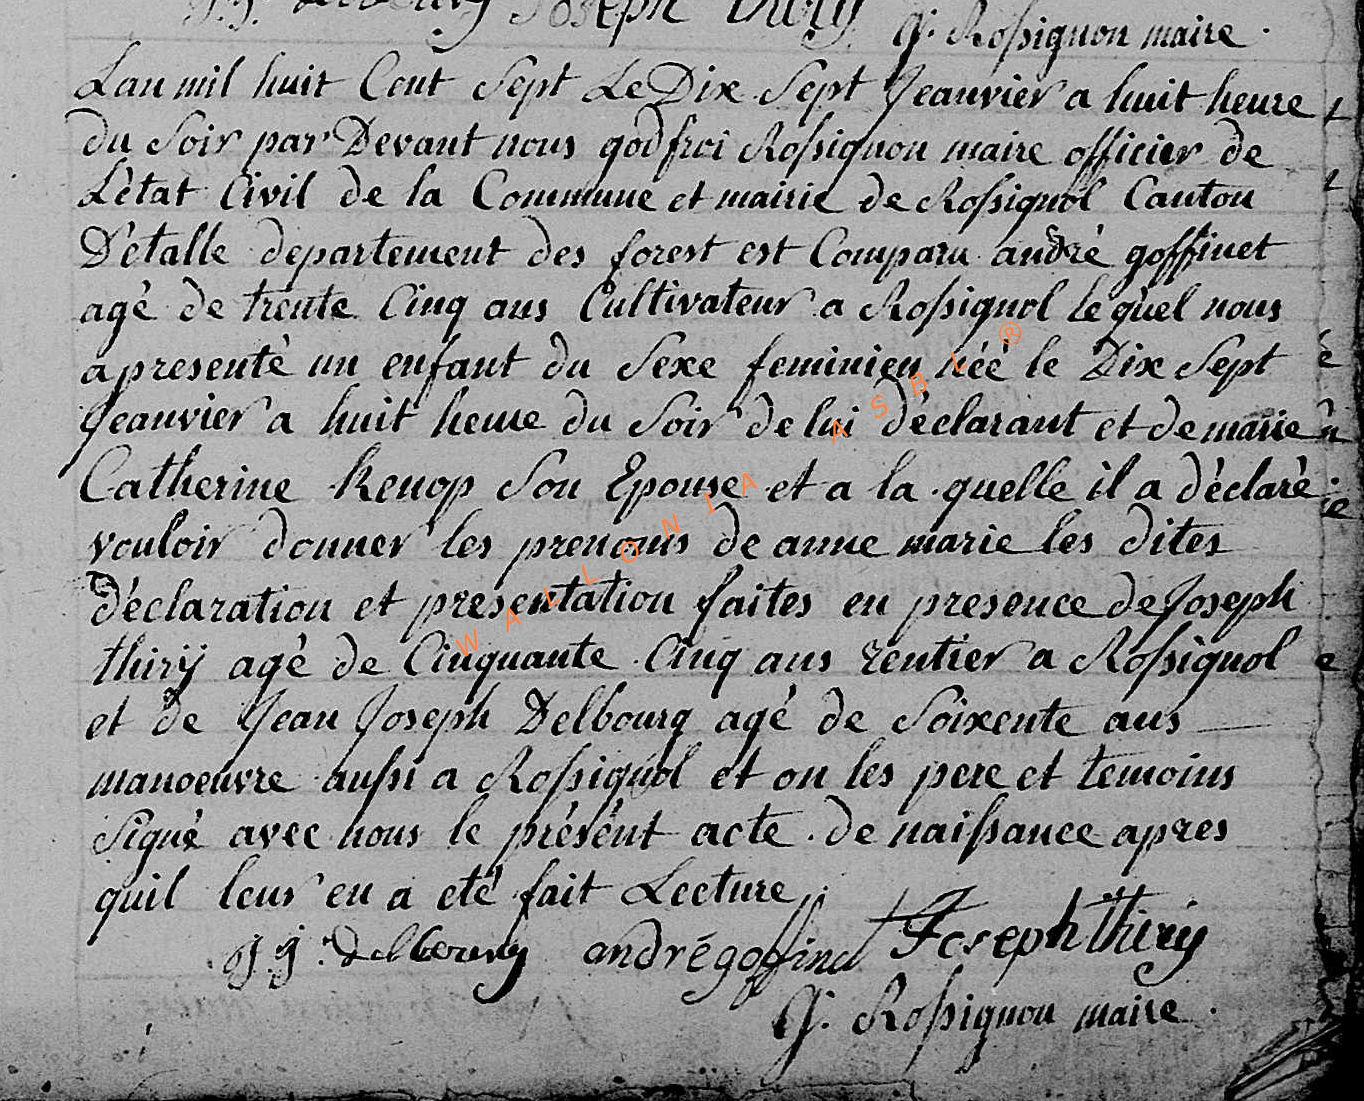 Joseph thirÿ
G. Rossignon maire.
Lan mil huit Cent Sept Le Dix Sept Jeanvier a huit heure
du Soir par Devant nous godfroi Rossignon maire officier de
L'état Civil de la Commune et mairie de Rossignol Canton
D'étalle departement des forest est Comparu andré goffinet
agé de trente Cinq ans Cultivateur a Rossignol le quel nous
a presenté un enfant du Sexe feminien néé le Dix Sept
Jeanvier a huit heure du Soir de lui déclarant et de marie
Catherine Kenop Son Epouse et a la quelle il a déclaré
vouloir donner les prenoms de anne marie les dites
déclaration et presentation faites en presence de Joseph
thirÿ agé de Cinquante Cinq ans rentier a Rossignol
et de Jean Joseph Delbourg agé de Soixente ans
manoeuvre aussi a Rossignol et on les pere et temoins
Signé avec nous le présént acte de naissance apres
quil leur en a eté fait Lecture
J.J. delbourg andré goffinet Joseph thirÿ
G. Rossignon maire.
WALLONIA ASBL ®